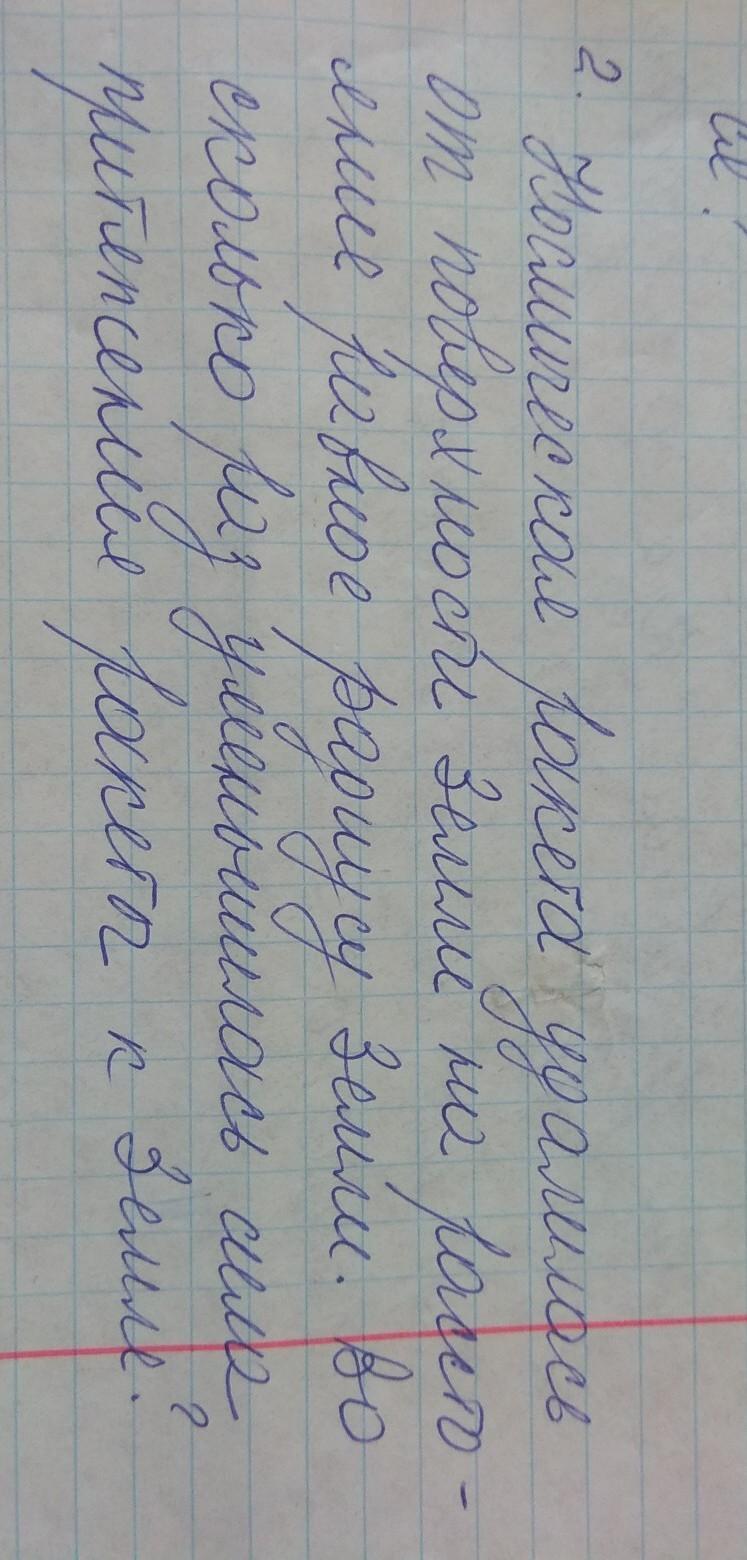 см.
2. Космическая ракета удалилась
от поверхности Земли на рассто-
яние равное радиусу Земли. Во
сколько раз уменьшилась сила
притяжения ракеты к Земле?